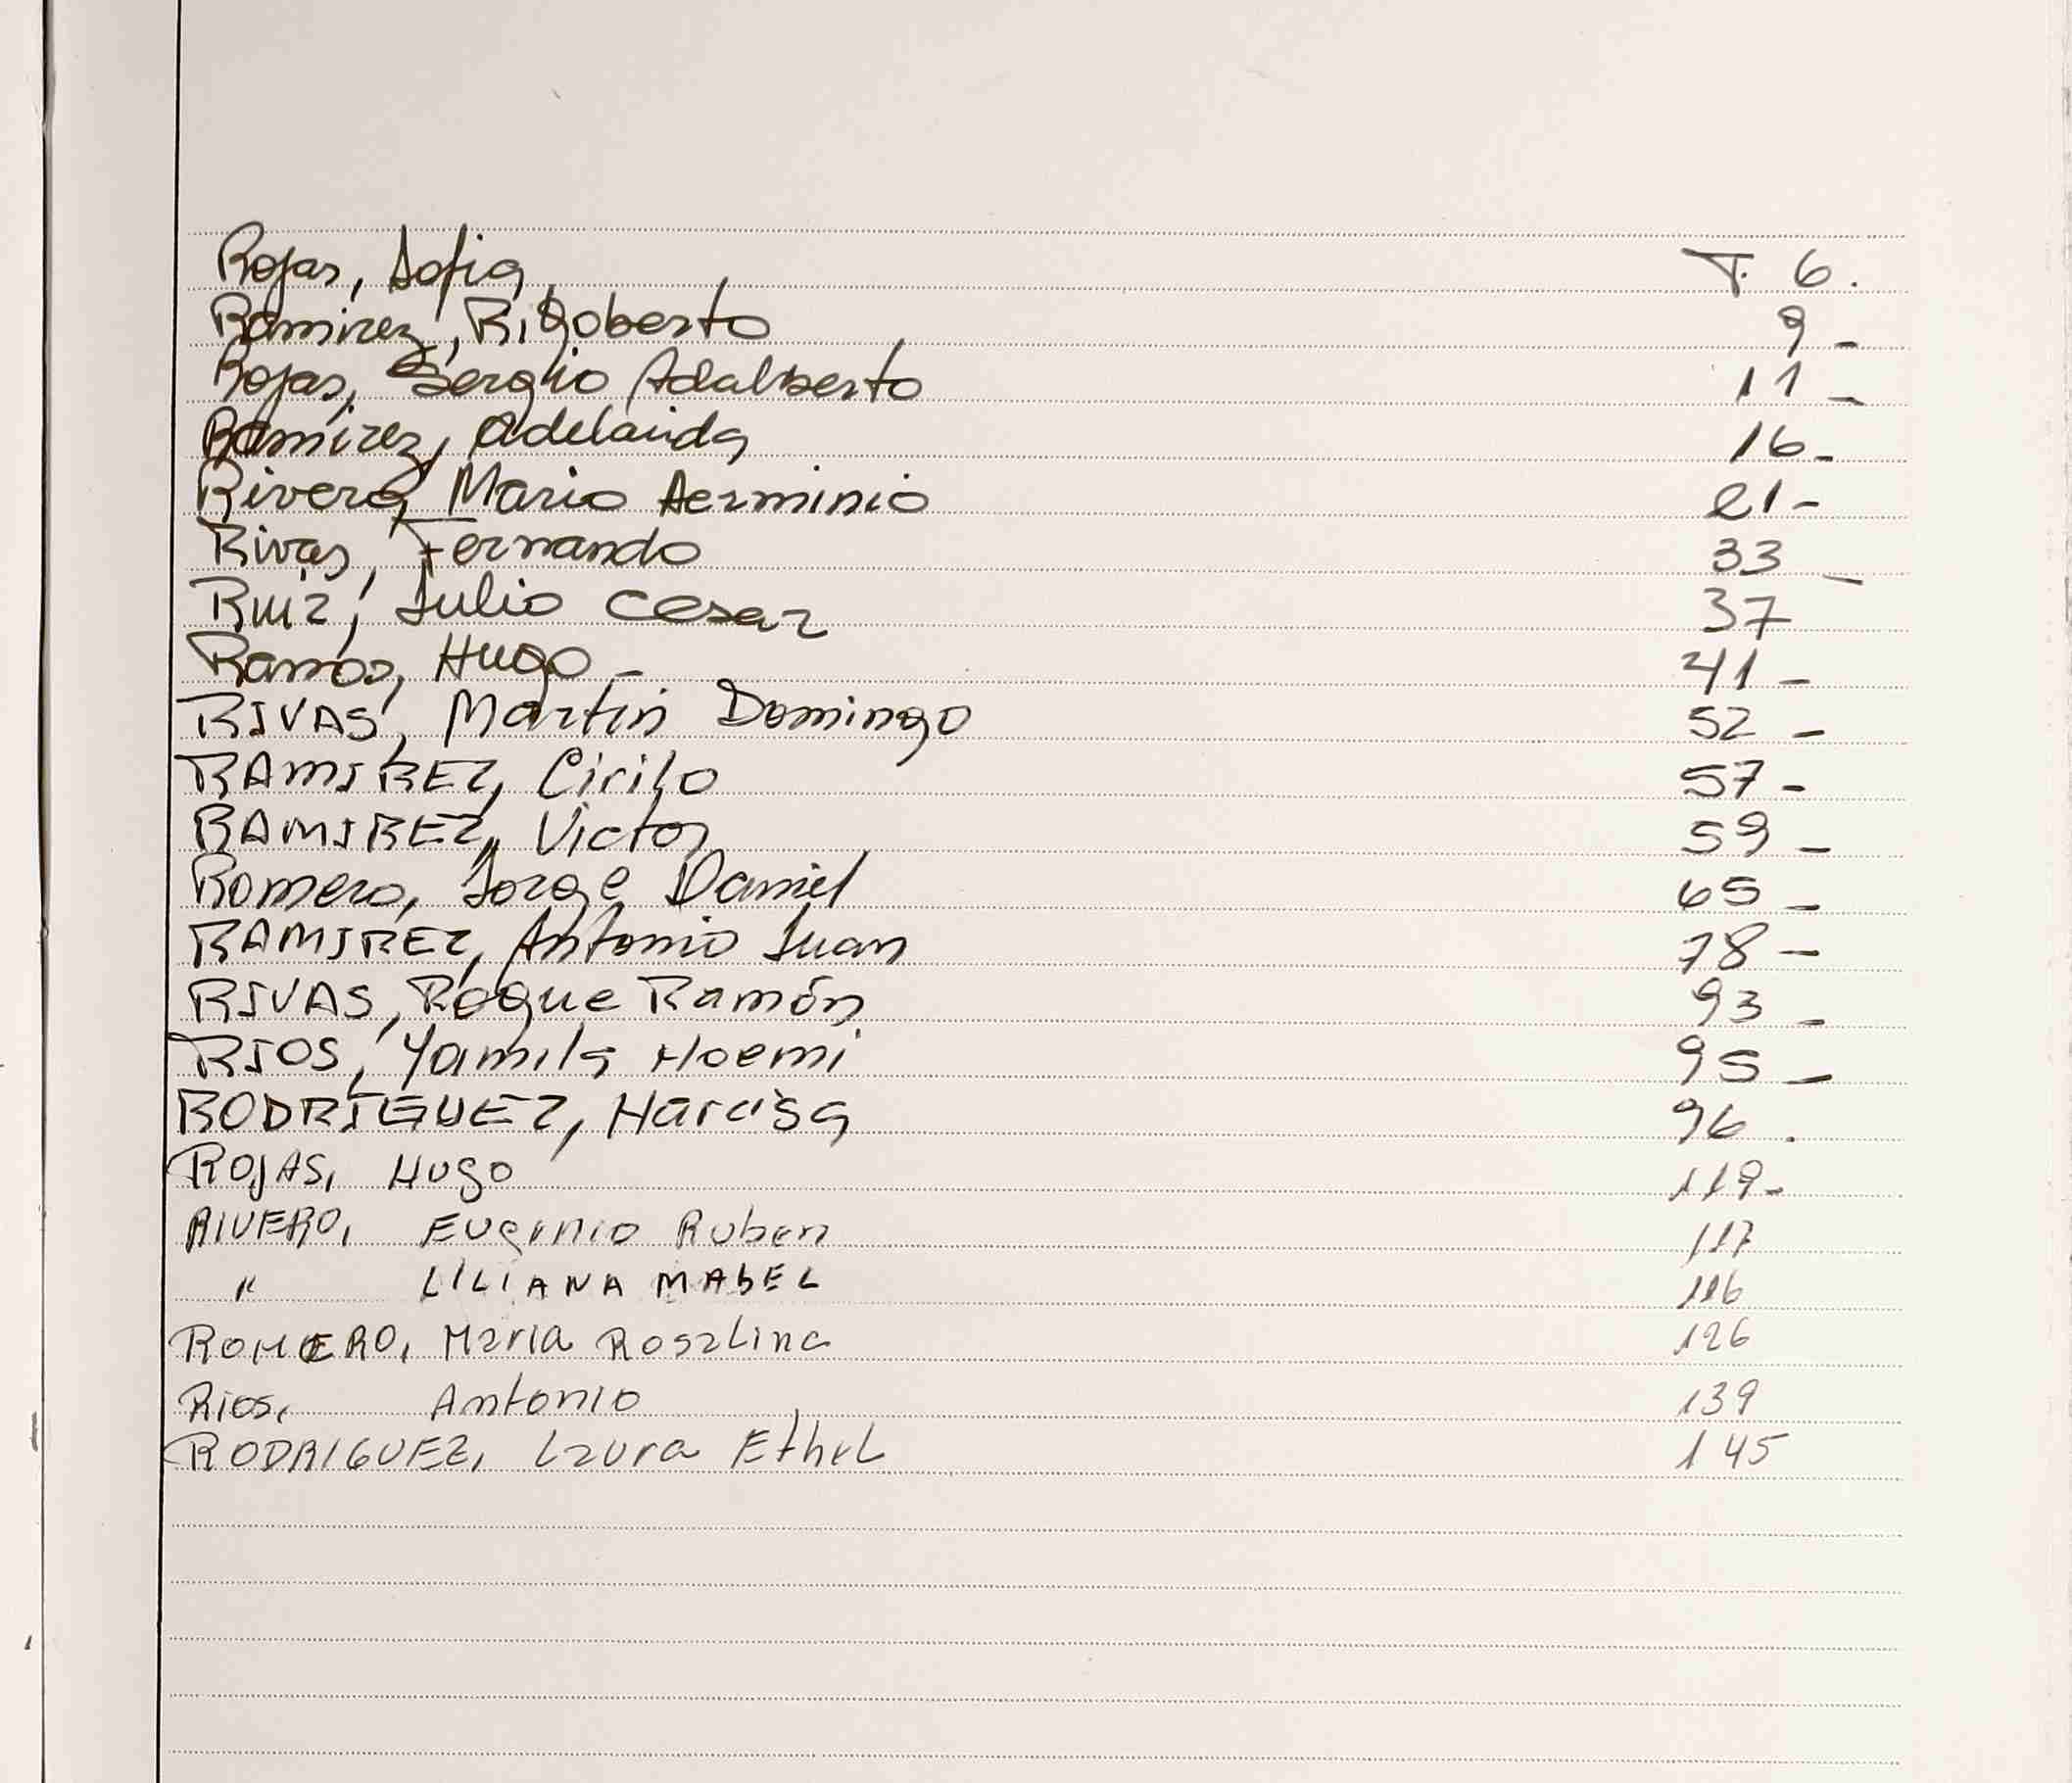 Rojas, Sofia T. 6.
Ramirez, Rigoberto 9-
Rojas, Sergio Adalberto 11-
Ramirez, Adelaida 16-
Rivero, Mario Herminio 21-
Rivas, Fernando 33-
Ruiz, Julio Cesar 37
Ramos, Hugo- 41-
RIVAS, Martin Domingo 52-
RAMIREZ, Cirilo 57-
RAMIREZ, Victor 59-
Romero, Jorge Daniel 65-
RAMIREZ, Antonio Juan 78-
RIVAS, Roque Ramón 93-
RIOS, Yamila Noemi 95-
RODRIGUEZ, Narcisa 96.
ROJAS, Hugo 119-
RIVERO, Eugenio Ruben 117
" LILIANA MABEL 116
ROMERO, Maria Rosalina 126
Rios, Antonio 139
RODRIGUEZ, Laura Ethel 145